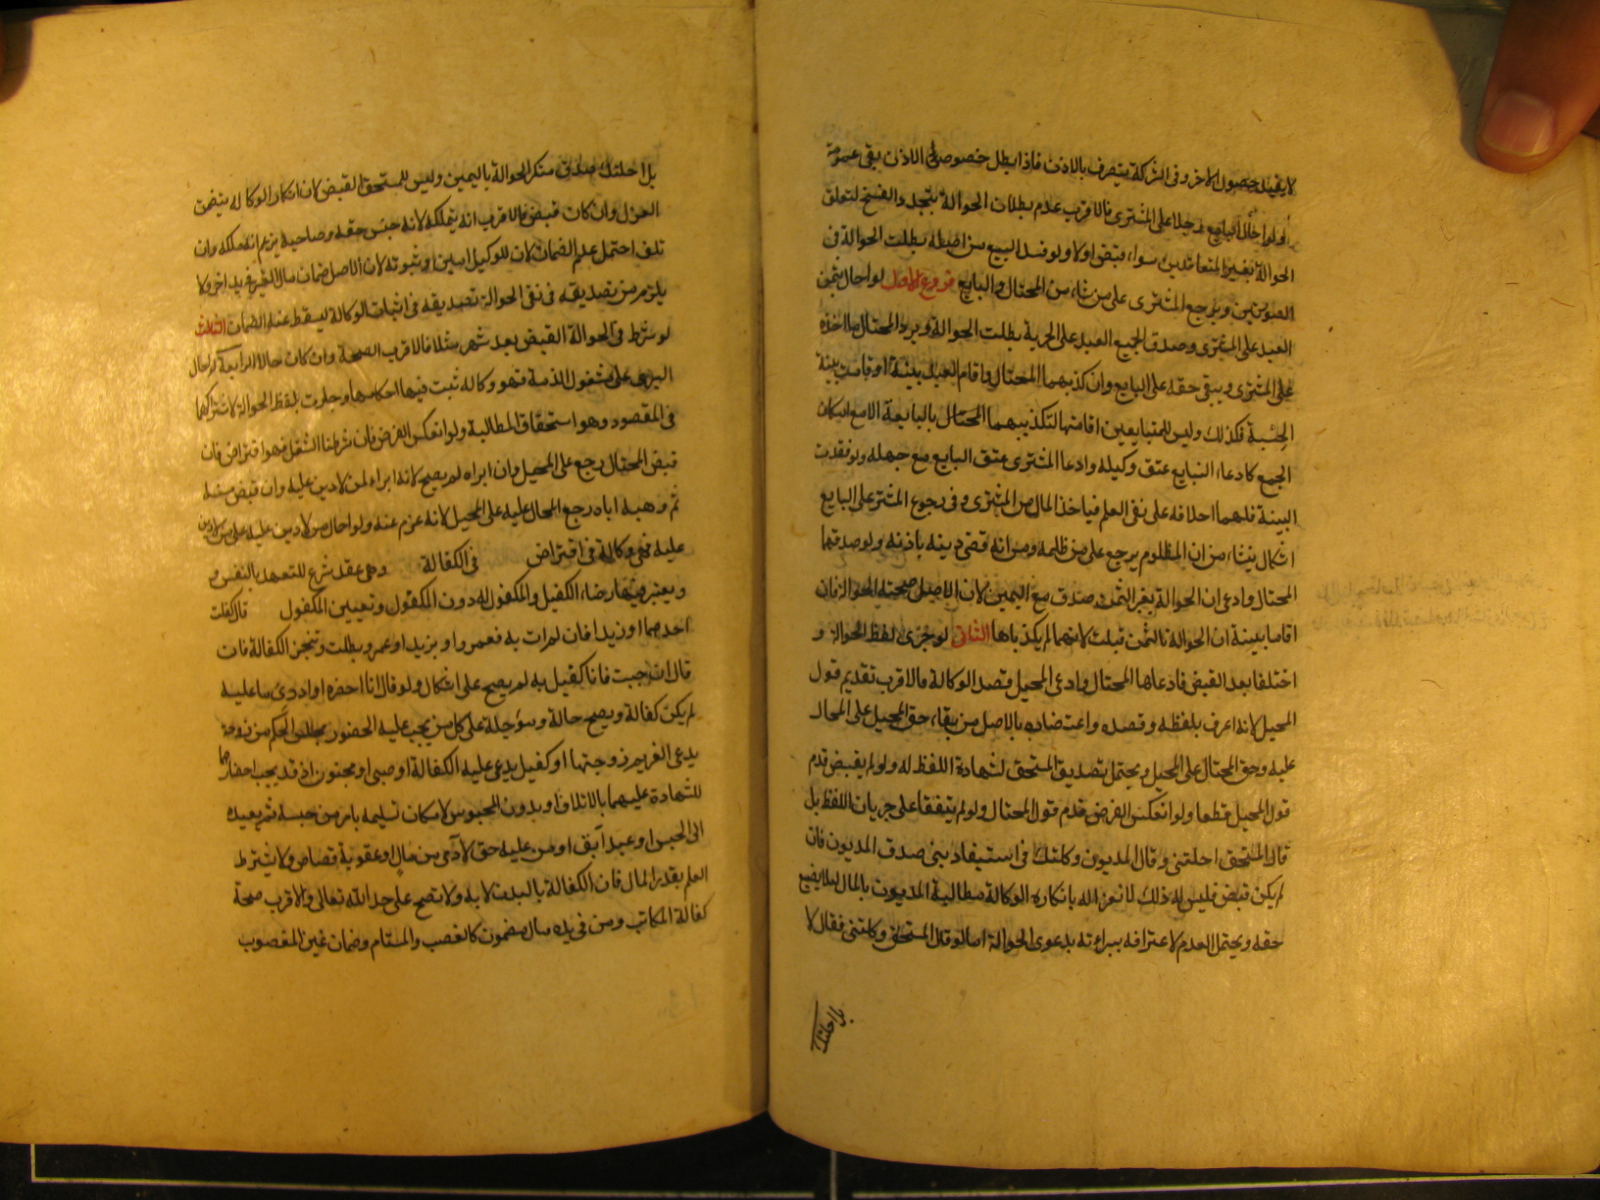 لا يفيد حصول الاخر وفى الشركة يتصرف بالاذن فاذا بطل خصوص الاذن بقى عمومه
ولو احال البايع رجلا على المشترى فالاقرب عدم بطلان الحوالة بتجدد الفسخ لتعلق
الحوالة بغير المتعاقدين سواء قبض او لا ولو فسد البيع من اصله بطلت الحوالة فى
الصورتين ويرجع المشترى على من شاء من المحتال والبايع فروع الاول لو احال بثمن
العبد على المشترى وصدق الجميع العبد على الحرية بطلت الحوالة ويرد المحتال ما اخذه
على المشترى ويبقى حقه على البايع وان كذبهما المحتال واقام العبد بينة او قامت بينة
الحسبة فكذلك وليس للمتبايعين اقامتها لتكذيبهما المحتال بالمبايعة الا مع امكان
الجمع كادعاء البايع عتق وكيله وادعا المشترى عتق البايع مع جهله ولو فقدت
البينة فلهما احلافه على نفى العلم فياخذ المال من المشترى وفى رجوع المشترى على البايع
اشكال ينشاء من ان المظلوم يرجع على من ظلمه ومن انه قضى دينه باذنه ولو صدقهما
المحتال وادعى ان الحوالة بغير الثمن صدق مع اليمين لان الاصل صحته الحوالة فان
اقاما بينة ان الحوالة بالثمن قبلت لانهما لم يكذباها الثانى لو جرى لفظ الحوالة و
اختلفا بعد القبض فادعاها المحتال وادعى المحيل قصد الوكالة فالاقرب تقديم قول
المحيل لانه اعرف بلفظه وقصده واعتضاده بالاصل من بقاء حق المحيل على المحال
عليه وحق المحتال على المحيل ويحتمل تصديق المستحق لشهادة اللفظ له ولو لم يقبض قدم
قول المحيل قطعا ولو انعكس الفرض قدم قول المحتال ولو لم يتفقا على جريان اللفظ بل
قال المستحق احلتنى وقال المديون وكلتك فى استيفاء دينى صدق المديون فان
لم يكن قبض فليس له ذلك لانعزاله بانكاره الوكالة مطالبة المديون بالمال لئلا يضيع
حقه ويحتمل العدم لاعترافه ببراءته بدعوى الحوالة اما لو قال المستحق وكلتنى فقال لا
بل احلتك
بل احلتك صدق منكر الحوالة باليمين وليس للمستحق القبض لان انكار الوكالة يتضمن
العزل وان كان قبض فالاقرب انه يتملكه لانه جنس حقه وصاحبه يزعم انه ملكه وان
تلف احتمل عدم الضمان لان الوكيل امين او ثبوته لان الاصل ضمان مال الغير فى يد اخر ولا
يلزم من تصديقه فى نفى الحوالة تصديقه فى اثبات الوكالة ليسقط عنه الضمان الثالث
لو شرط فى الحوالة القبض بعد شهر مثلا فالاقرب الصحة وان كان حالا الرابعة لو احال
البرى على مشغول الذمة فهو وكاله ثبت فيها احكامها وجازت بلفظ الحوالة لاشتراكهما
فى المقصود وهو استحقاق المطالبة ولو انعكس الفرض فان شرطنا الشغل فهو اقتراض فان
قبض المحتال رجع على المحيل وان ابراه لم يصح لانه ابراء لمن لا دين عليه وان قبض منه
ثم وهبه اياه رجع المحال عليه على المحيل لانه غرم عنه ولو احال من لا دين عليه على من لا دين
عليه فهى وكالة فى اقتراض فى الكفالة وهى عقد شرع للتعهد بالنفس
ويعتبر فيها رضاء الكفيل والمكفول له دون المكفول وتعيين المكفول فلو قال كفلت
احدهما او زيدا فان لم ات به فعمروا او بزيد او عمرو بطلت وتنجيز الكفالة فان
قال ان جيت فانا كفيل به لم يصح على اشكال ولو قال انا احضره او اودى ما عليه
لم يكن كفالة ويصح حالة ومؤجلة على كل من يجب عليه الحضور مجلس الحكم من زوجة
يدعى الغريم زوجيتها او كفيل يدعى عليه الكفالة او صبى او مجنون اذ قد يجب احضارهما
للشهادة عليهما بالاتلاف وبدون المحبوس لامكان تسليمه بامر من حبسه ثم يعيده
الى الحبس او عبد آبق او من عليه حق لادمى من مال او عقوبة قصاص ولا يشترط
العلم بقدر المال فان الكفالة بالبدن لا به ولا تصح على حد الله تعالى والاقرب صحة
كفالة المكاتب ومن فى يده مال مضمون كالغصب والمستام وضمان عين المغصوب